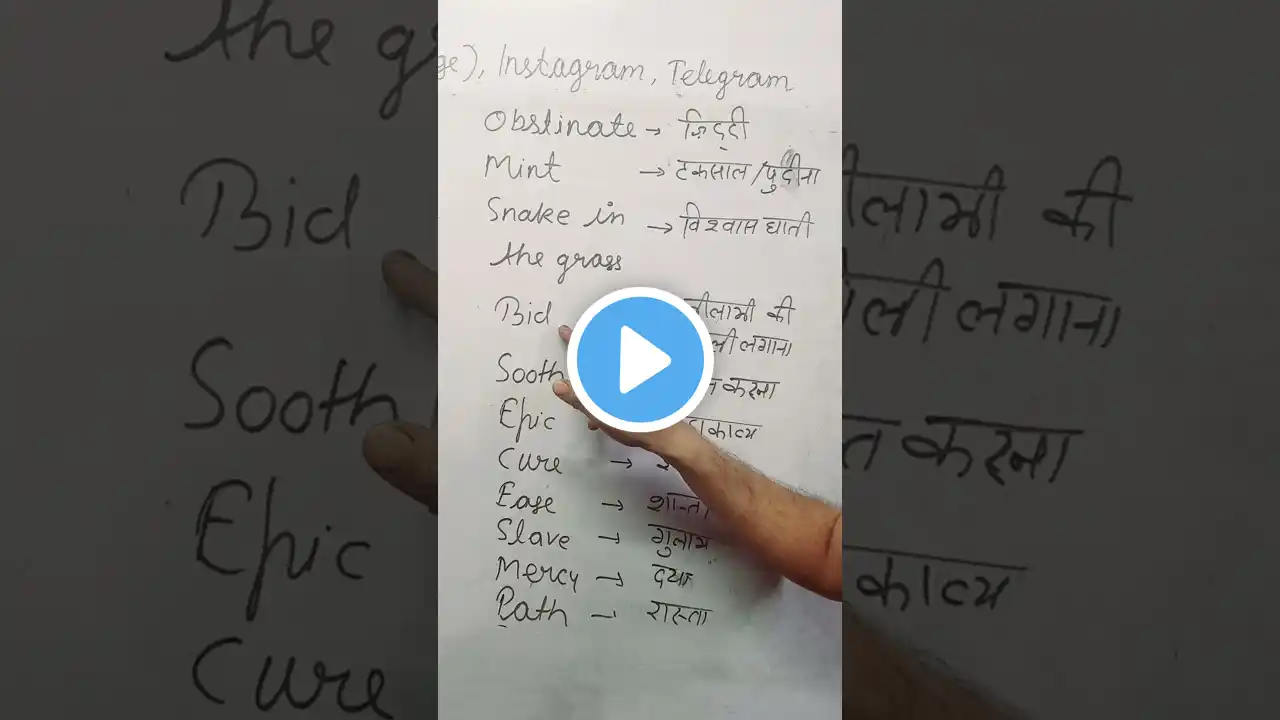 ge), Instagram, Telegram
Obstinate → ज़िद्दी
Mint → टकसाल/पुदीना
Snake in → विश्वासघाती
the grass
Bid नीलामी की
ली लगाना
Sooth करना
Epic काव्य
Cure →
Ease →
Slave → गुलाम
Mercy → दया
Path → रास्ता